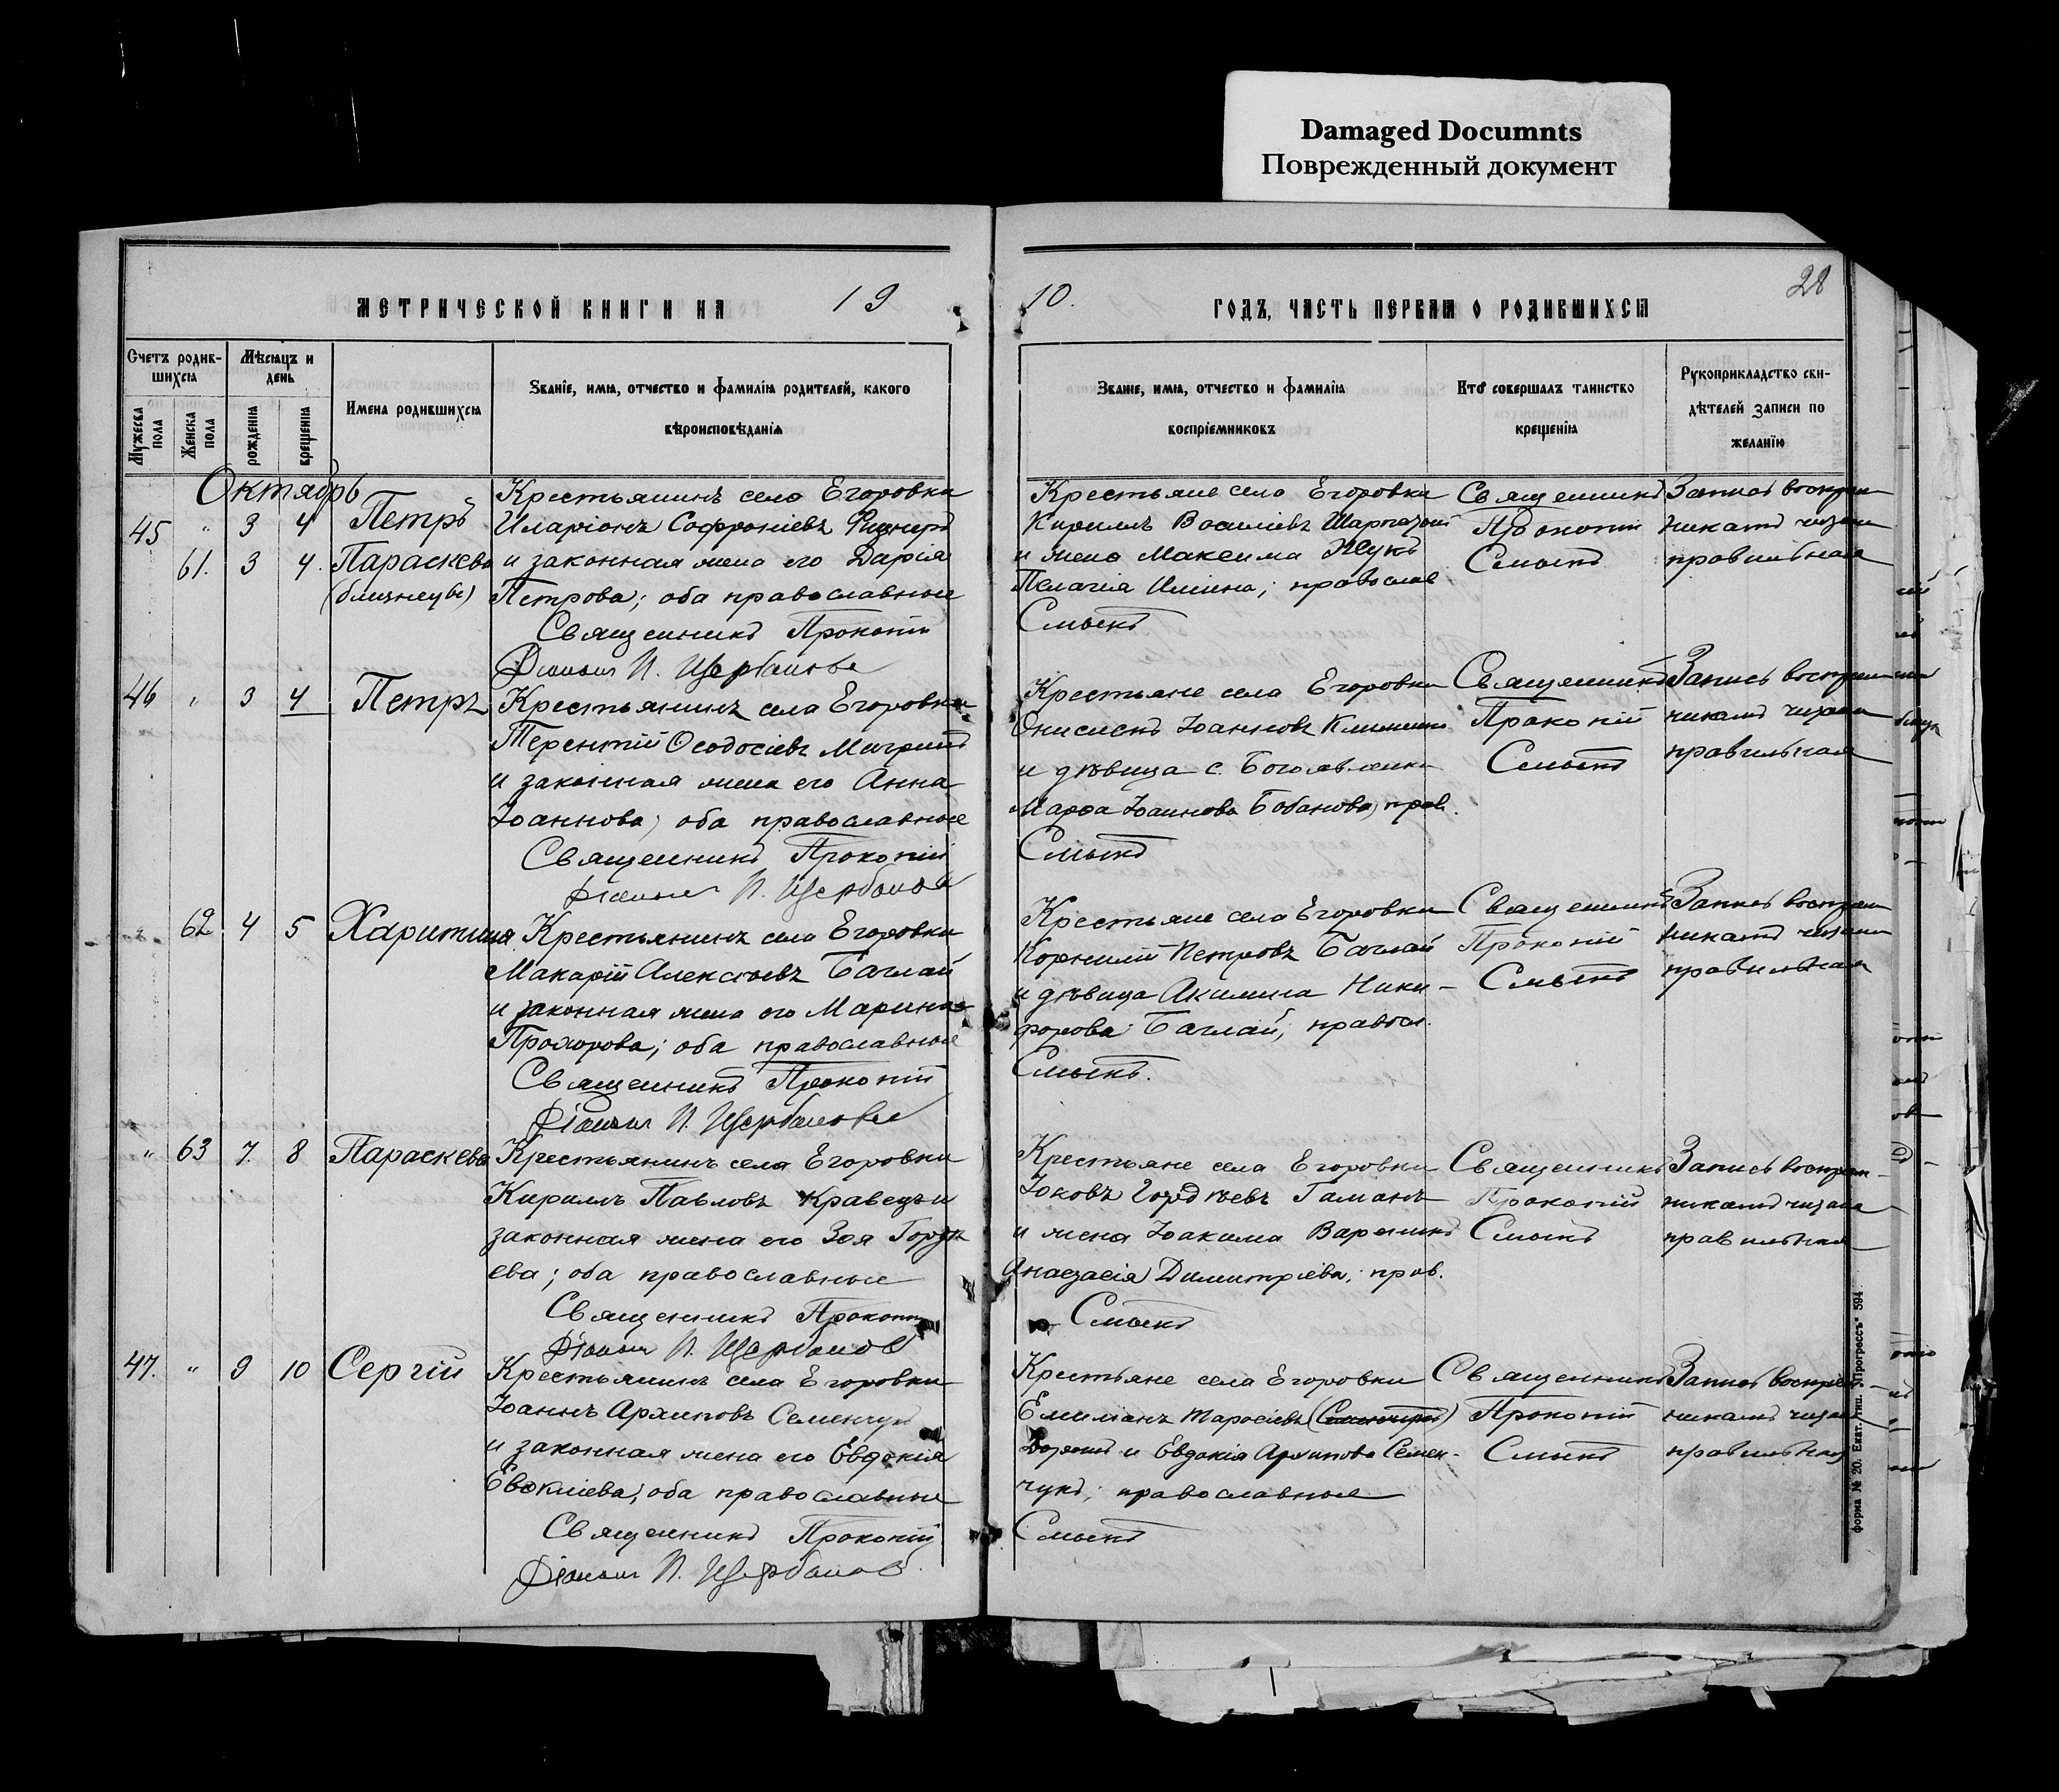 Damaged Documnts
Поврежденный документ
28
МЕТРИЧЕСКОЙ КНИГИ НА 19
10. ГОДЪ, ЧАСТЬ ПЕРВАЯ О РОДИВШИХСЯ
Счетъ родив-
шихся
Мужеска пола
Женска пола
Мѣсяцъ и
день
рожденія
крещенія
Имена родившихся
Званіе, имя, отчество и фамилія родителей, какого
вѣроисповѣданія
Званіе, имя, отчество и фамилія
воспріемниковъ
Кто совершалъ таинство
крещенія
Рукоприкладство сви-
дѣтелей записи по
желанію
Октябрь
45 " 3 4 Петръ
61. 3 4. Параскева
(близнецы)
Крестьянинъ села Егоровки
Иларіонъ Софроніевъ
и законная жена его Дарія
Петрова; оба православные
Священникъ Прокопій
Діаконъ И. Щербановъ
Крестьяне села Егоровки
Кириллъ Василіевъ
и жена Максима Жукъ
Пелагія Иліина; православ
Смыкъ
Священникъ
Прокопій
Смыкъ
Запись воспріем
никамъ читана
правильная
46 " 3 4 Петръ
Крестьянинъ села Егоровки
Терентій Ѳеодосіевъ
и законная жена его Анна
Іоаннова; оба православные
Священникъ Прокопій
Діаконъ И. Щербановъ
Крестьяне села Егоровки
Онисимъ Іоанновъ Клименко
и дѣвица с. Богоявленки
Марѳа Іоаннова Бабанова; прав.
Смыкъ
Священникъ
Прокопій
Смыкъ
Запись воспріем
никамъ читана
правильная
" 62 4 5 Харитина
Крестьянинъ села Егоровки
Макарій Алексіевъ Баглай
и законная жена его Марина
Прохорова; оба православные
Священникъ Прокопій
Діаконъ И. Щербановъ
Крестьяне села Егоровки
Корнилій Петровъ Баглай
и дѣвица Акилина Ники-
форова Баглай; правосл.
Смыкъ.
Священникъ
Прокопій
Смыкъ
Запись воспріем
никамъ читана
правильная
" 63 7. 8 Параскева
Крестьянинъ села Егоровки
Кириллъ Павловъ Кравецъ и
законная жена его Зоя Горди
ева; оба православные
Священникъ Прокопій
Діаконъ И. Щербановъ
Крестьяне села Егоровки
Іаковъ Гордѣевъ Гаманъ
и жена Іоакима Вареникъ
Анастасія Димитріева; прав.
Смыкъ
Священникъ
Прокопій
Смыкъ
Запись воспріем
никамъ читана
правильная
47. " 9 10 Сергій
Крестьянинъ села Егоровки
Іоаннъ Архиповъ Семенчукъ
и законная жена его Евдокія
Евсигніева; оба православные
Священникъ Прокопій
Діаконъ И. Щербановъ
Крестьяне села Егоровки
Емиліанъ Тарасіевъ
и Евдокія Архипова Семен-
чукъ; православные
Смыкъ
Священникъ
Прокопій
Смыкъ
Запись воспріем
никамъ читана
правильная
форма № 20. Екат. тип. "Прогрессъ" 594